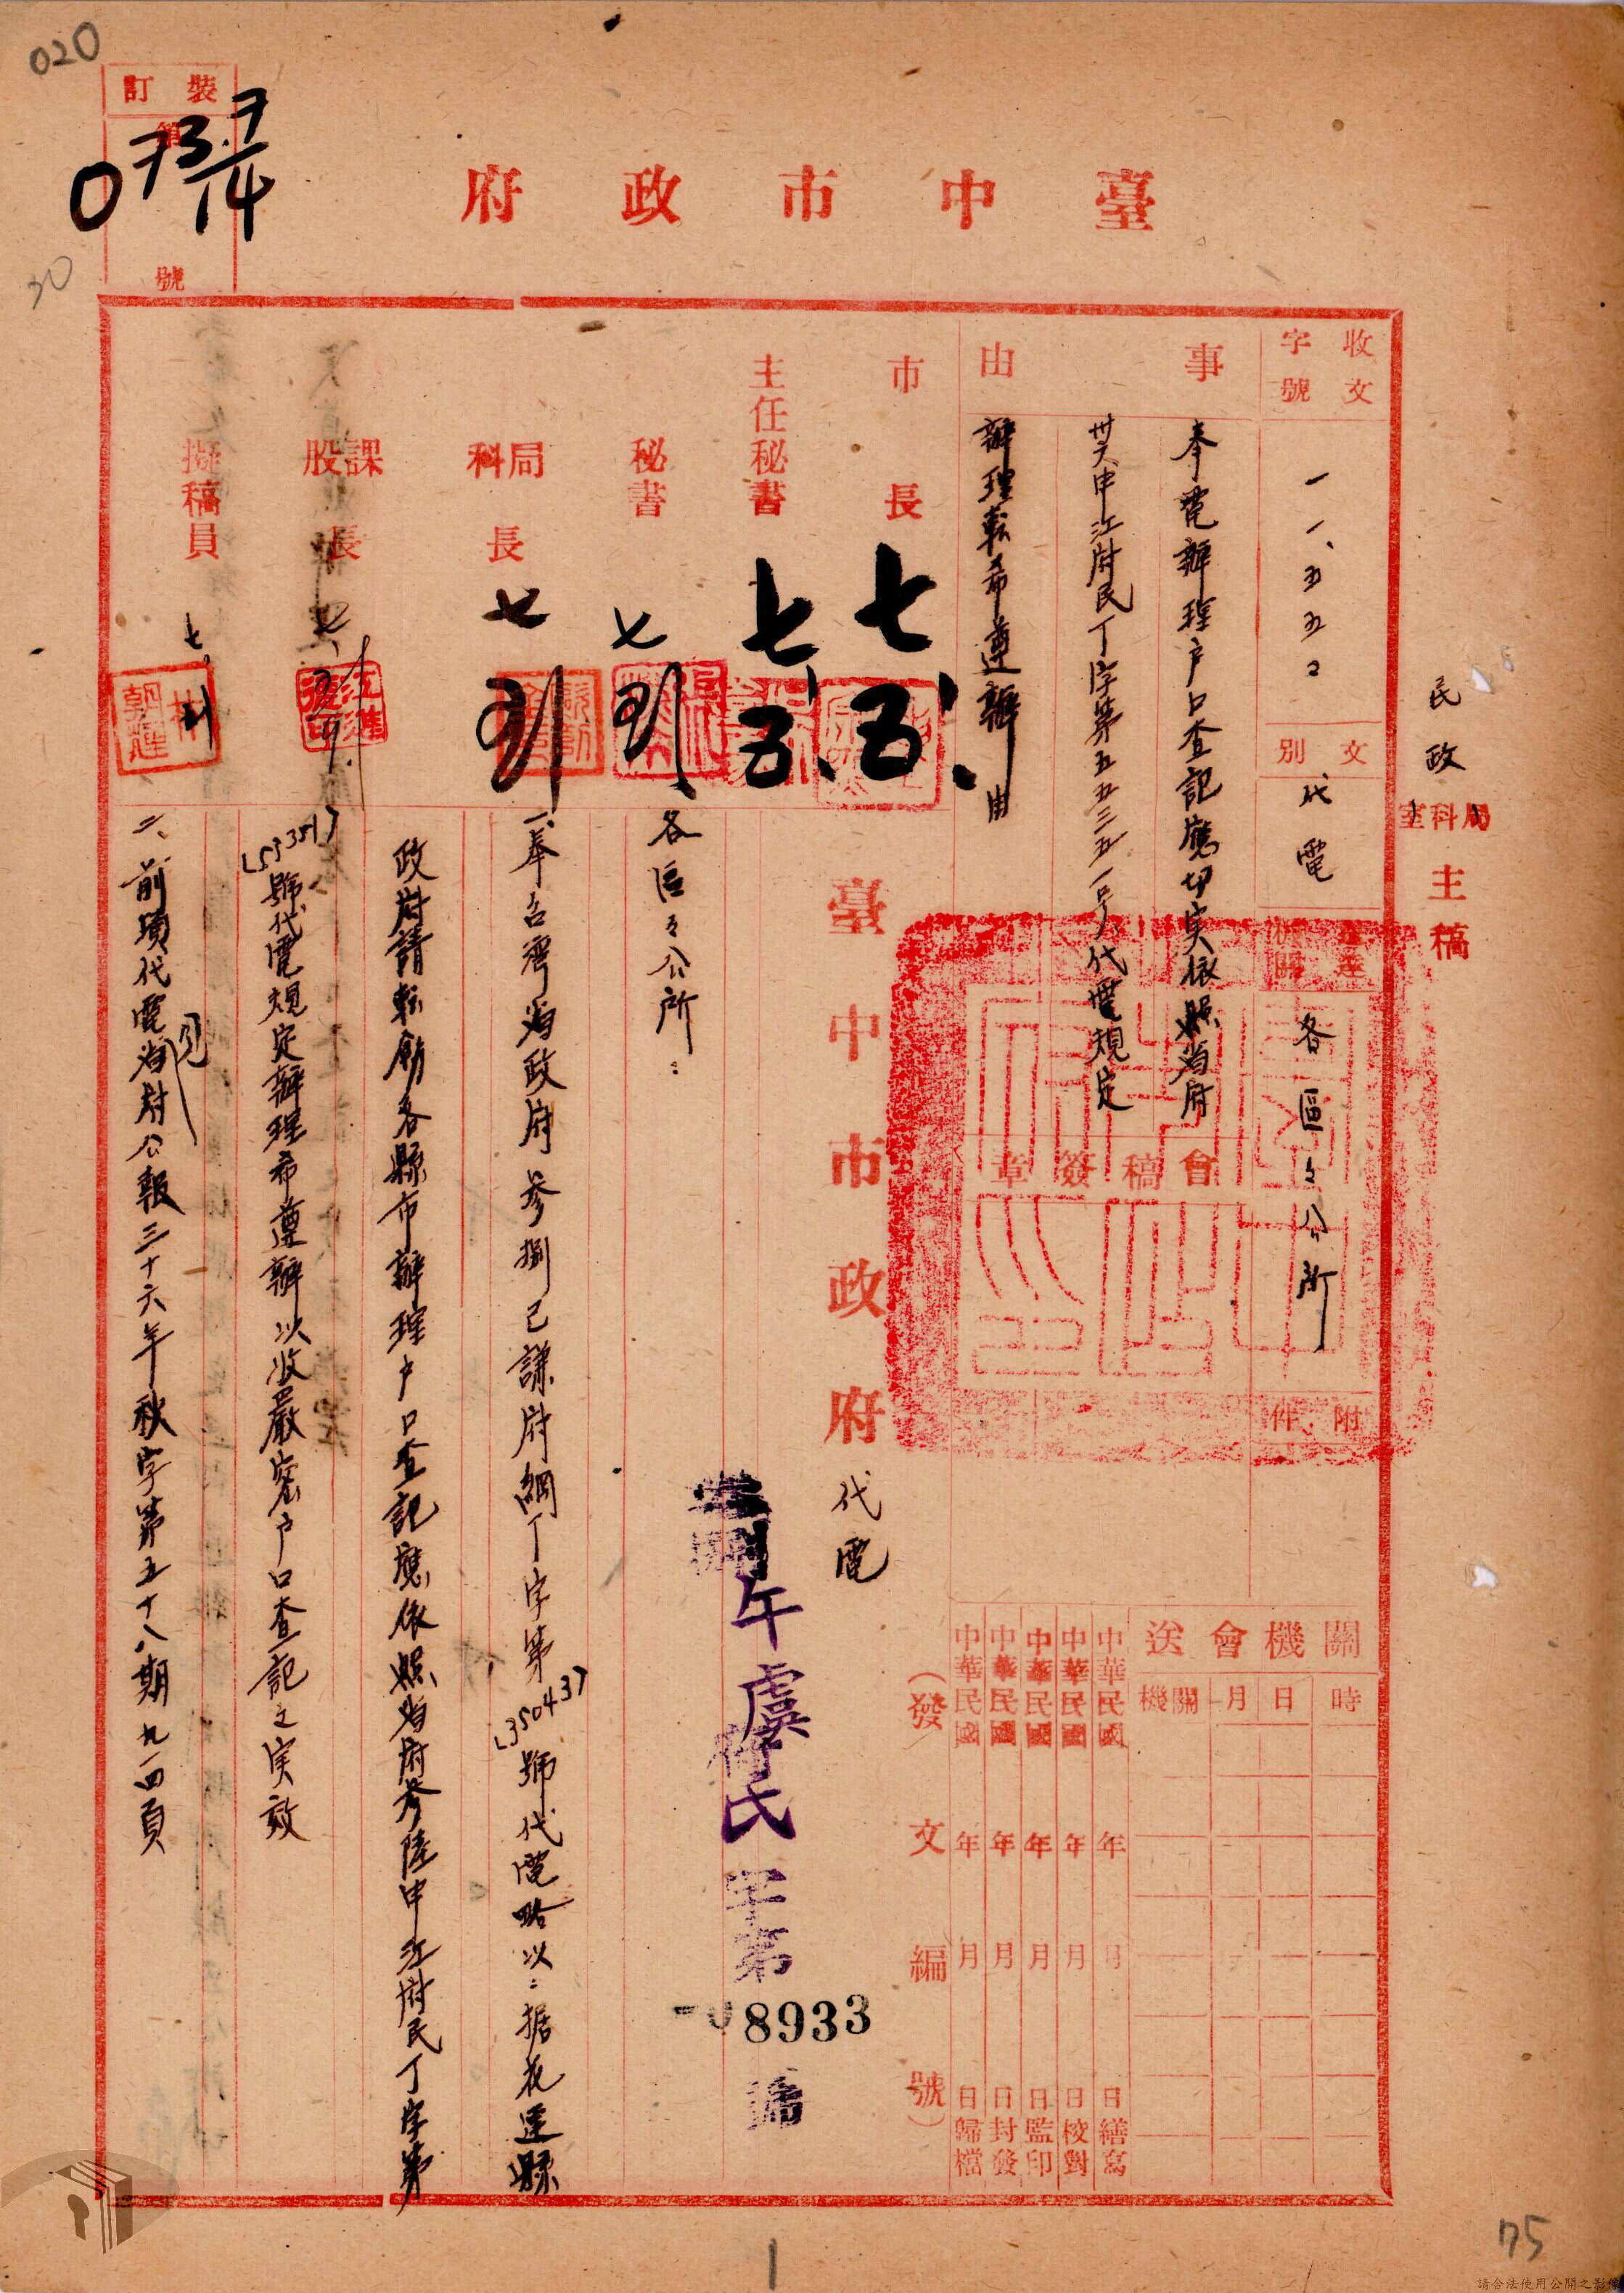 020
裝訂
第
號
073.7/14
30
臺中市政府
民政
局科室
主稿
收文
字號
一一、五五〇
文別
代電
送達機關
各區區公所
附件
事由
奉電辦理户口查記應切実依照省府
卅六申江府民丁字第五五三五一号代電規定
辦理転希遵辦由
會稿簽章
關機會送
機關
月
日
時
中華民國 年 月 日繕寫
中華民國 年 月 日校對
中華民國 年 月 日監印
中華民國 年 月 日封發
中華民國 年 月 日歸檔
(發文編號)
市長
七
主任秘書
七
秘書
七
局科長
七
課股長
七
擬稿員
七
臺中市政府代電
午虞
府民
字第
8933
號
各區区公所：
一、奉台灣省政府參捌已謙府綱丁字第(35043)號代電略以：据花蓮縣
政府請転飭各縣市辦理户口查記應依照省府參陸申江府民丁字第
(53351)號代電規定辦理希遵辦以收嚴密户口查記之実效
二、前項代電見省府公報三十六年秋字第五十八期九一四頁
1
75
請合法使用公開之影像